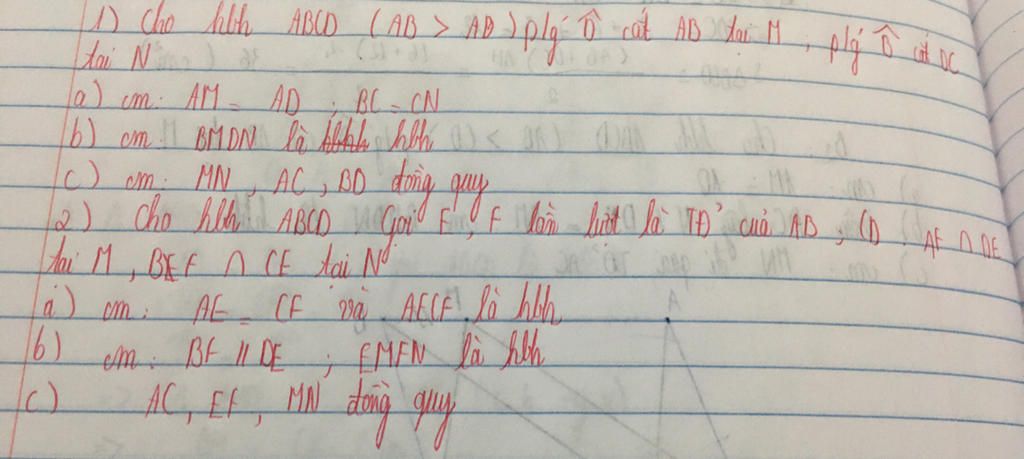 1) Cho hbh ABCD (AB > AD) p/g D̂ cắt AB tại M, p/g B̂ cắt DC
tại N
a) cm: AM = AD ; BC = CN
b) cm: BMDN là hbh
c) cm: MN, AC, BD đồng quy
2) Cho hbh ABCD. Gọi E, F lần lượt là TĐ' của AB, CD. AF ∩ DE
tại M, BF ∩ CE tại N
a) cm: AE = CF và AECF là hbh
b) cm: BF // DE ; EMFN là hbh
c) AC, EF, MN đồng quy
A